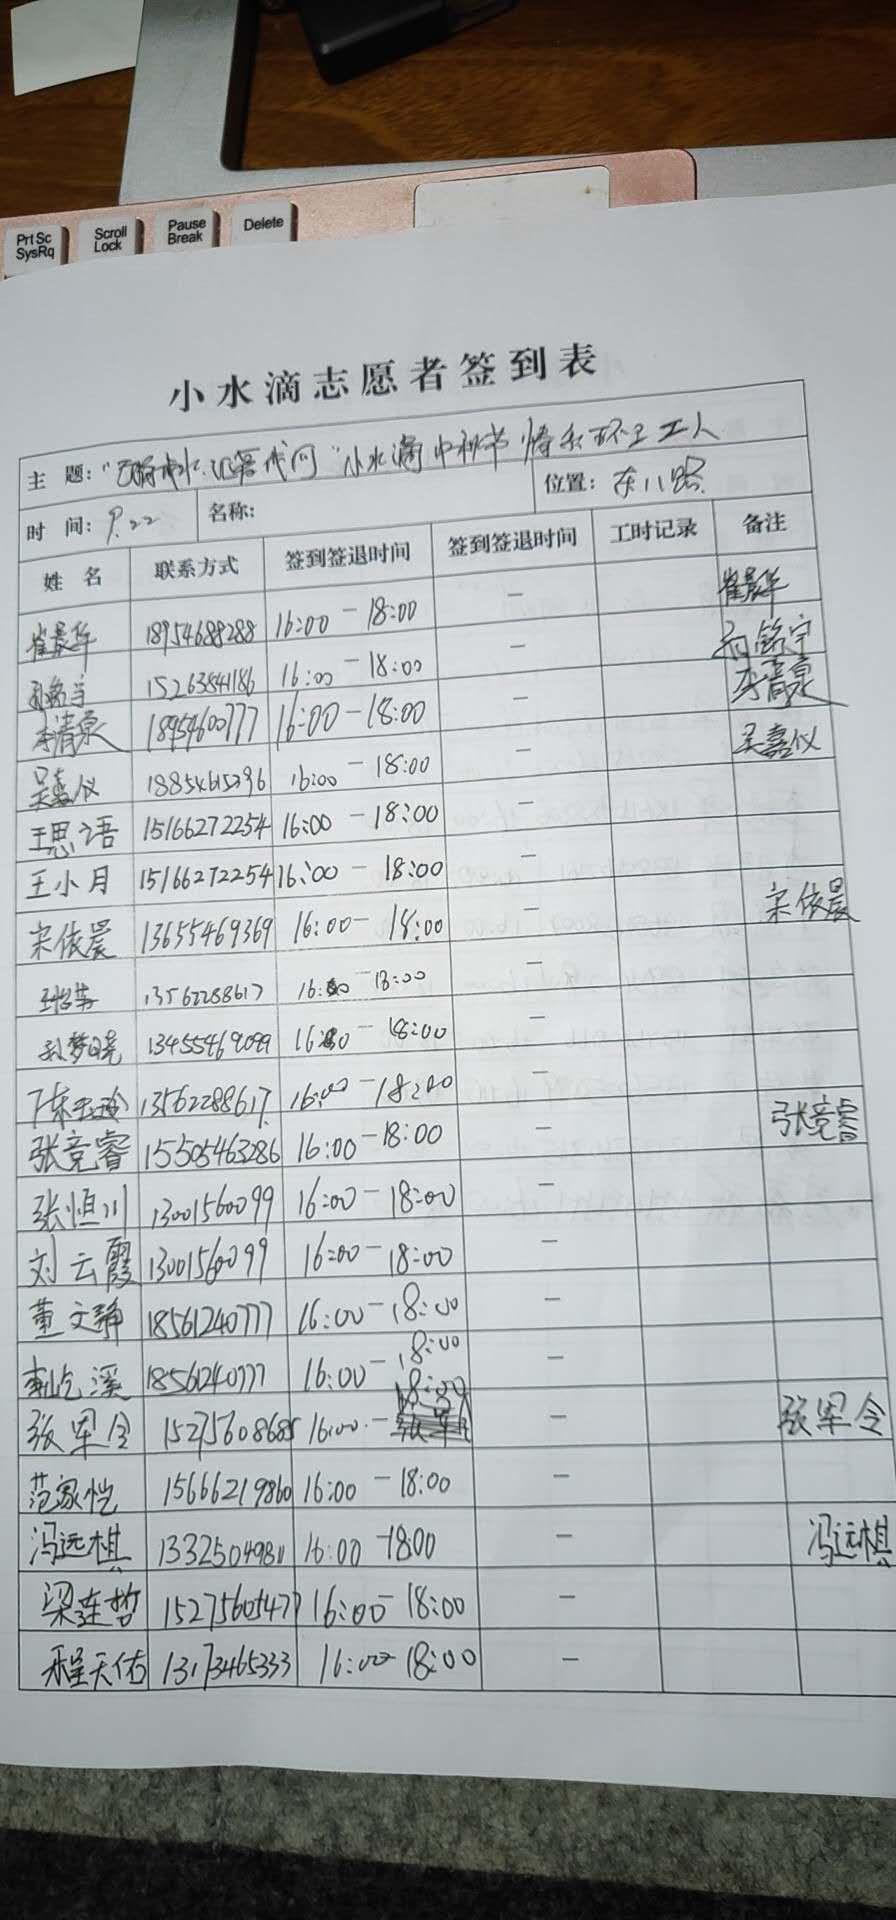 Prt Sc SysRq
Scroll Lock
Pause Break
Delete
小水滴志愿者签到表
主 题： 小水滴中秋节 环卫工人
时 间：9.22 名称： 位置：东八路
姓 名 联系方式 签到签退时间 签到签退时间 工时记录 备注
崔晨华 18954688288 16:00-18:00 - 崔晨华
15263841186 16:00-18:00 - 铭宇
李清泉 18954600777 16:00-18:00 - 李清泉
吴嘉仪 18854615296 16:00-18:00 - 吴嘉仪
王思语 15166272254 16:00-18:00 -
王小月 15166272254 16:00-18:00 -
宋依晨 13655469369 16:00-18:00 - 宋依晨
13562288617 16:00-18:00 -
孙梦晓 13455469099 16:00-18:00 -
陈玉玲 13562288617 16:00-18:00 -
张竞睿 15505463286 16:00-18:00 - 张竞睿
张恒川 13001560099 16:00-18:00 -
刘云霞 13001560099 16:00-18:00 -
董文静 18561240777 16:00-18:00 -
溪 18561240777 16:00-18:00 -
张军令 15275608685 16:00-18:00 - 张军令
范家恺 15666219860 16:00-18:00 -
冯远棋 13325049811 16:00-18:00 - 冯远棋
梁连哲 15275605477 16:00-18:00 -
程天佑 13173465333 16:00-18:00 -